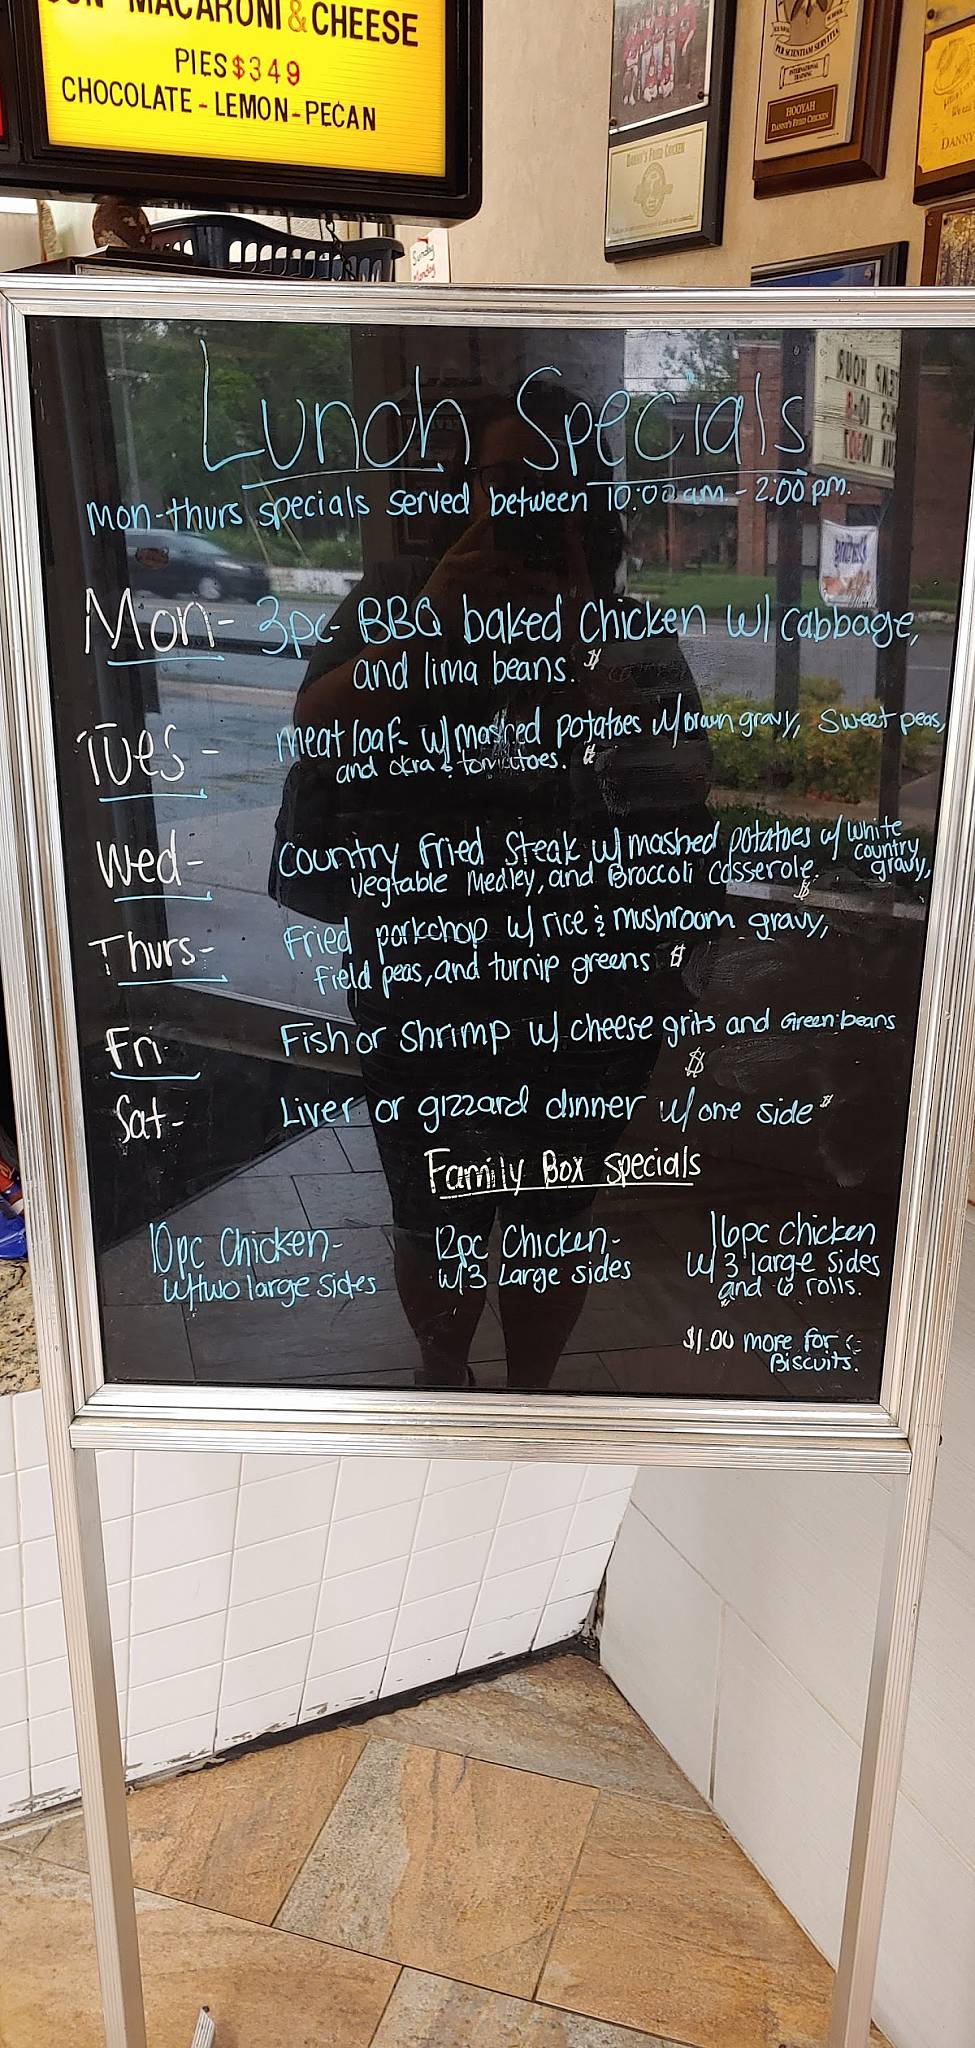 MACARONI & CHEESE
PIES $3 49
CHOCOLATE - LEMON - PECAN
DANNY'S FRIED CHICKEN
PER SCIENTIAM SERVITUS
INTERNATIONAL
TRAINING
HOOYAH
DANNY'S FRIED CHICKEN
DANNY
Sunday
Monday
Lunch Specials
Mon-thurs specials served between 10:00 am - 2:00 pm.
Mon- 3pc- BBQ baked chicken w/ cabbage,
and lima beans. $
Tues - meat loaf w/ mashed potatoes w/ brown gravy, sweet peas,
and okra & tomatoes. $
Wed - Country Fried Steak w/ mashed potatoes w/ white
country
gravy,
vegtable Medley, and Broccoli Casserole. $
Thurs- Fried porkchop w/ rice & mushroom gravy,
field peas, and turnip greens $
Fri- Fish or Shrimp w/ cheese grits and Green beans
$
Sat- Liver or gizzard dinner w/ one side $
Family Box specials
10pc Chicken-
w/two large sides
12pc Chicken-
w/3 Large sides
16pc chicken
w/ 3 large sides
and 6 rolls.
$1.00 more for
Biscuits.